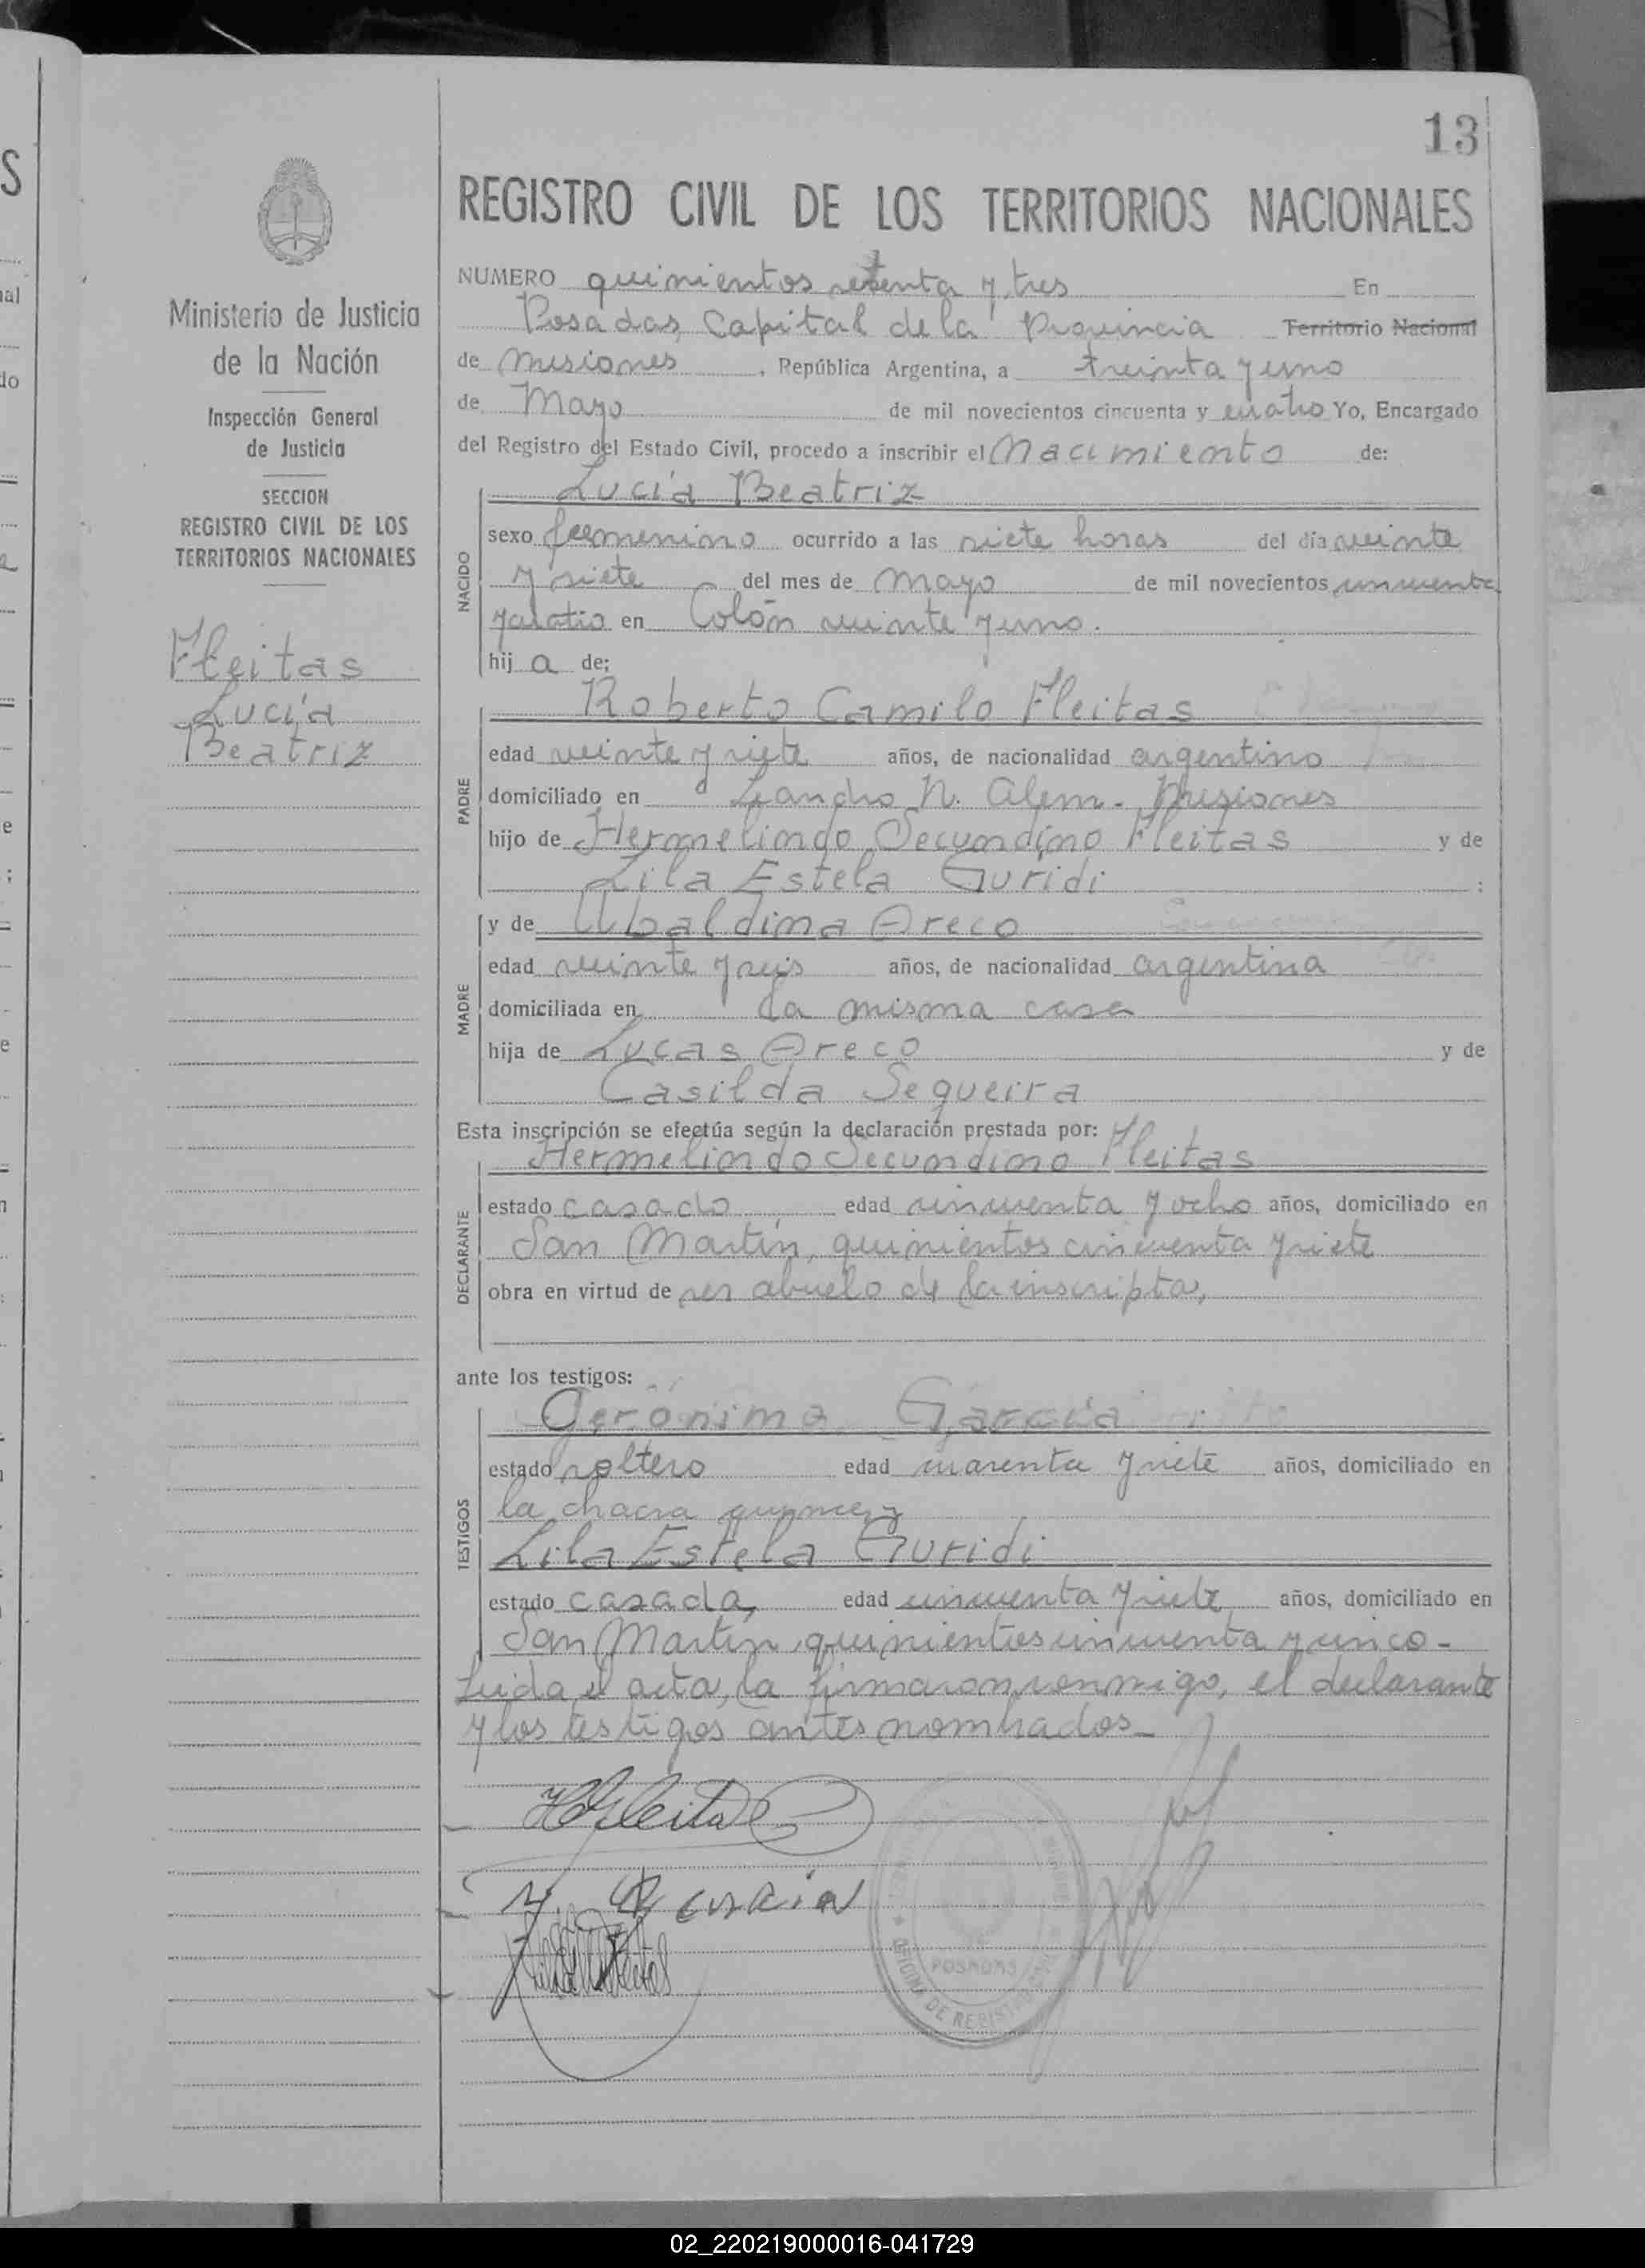 13
REGISTRO CIVIL DE LOS TERRITORIOS NACIONALES
NUMERO quinientos setenta y tres En
Posadas, Capital de la Provincia Territorio Nacional
de Misiones, República Argentina, a treinta y uno
de Mayo de mil novecientos cincuenta y cuatro Yo, Encargado
del Registro del Estado Civil, procedo a inscribir el Nacimiento de:
Ministerio de Justicia
de la Nación
Inspección General
de Justicia
SECCION
REGISTRO CIVIL DE LOS
TERRITORIOS NACIONALES
Fleitas
Lucía
Beatriz
NACIDO
Lucía Beatriz
sexo femenino ocurrido a las siete horas del día veinte
y siete del mes de mayo de mil novecientos cincuenta
y cuatro en Colón veinte y uno.
hij a de:
PADRE
Roberto Camilo Fleitas
edad veinte y siete años, de nacionalidad argentino
domiciliado en Leandro N. Alem - Misiones
hijo de Hermelindo Secundino Fleitas y de
Lila Estela Guridi ;
MADRE
y de Ubaldina Areco
edad veinte y seis años, de nacionalidad argentina
domiciliada en la misma casa
hija de Lucas Areco y de
Casilda Sequeira
Esta inscripción se efectúa según la declaración prestada por:
DECLARANTE
Hermelindo Secundino Fleitas
estado casado, edad cincuenta y ocho años, domiciliado en
San Martín, quinientos cincuenta y siete
obra en virtud de ser abuelo de la inscripta,
ante los testigos:
TESTIGOS
García
estado soltero edad cuarenta y siete años, domiciliado en
la chacra quince, y
Lila Estela Guridi
estado casada, edad cincuenta y siete años, domiciliado en
San Martín, quinientos cincuenta y cinco -
Leida el acta, la firmaron conmigo, el declarante
y los testigos antes nombrados -
POSADAS
OFICINA DE
02_220219000016-041729